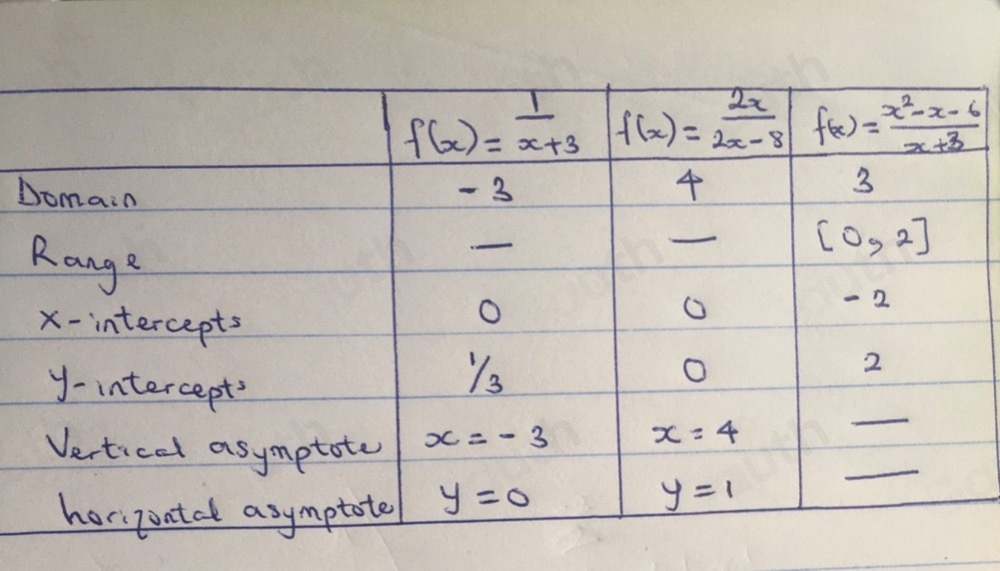 f(x) = 1/(x+3) f(x) = 2x/(2x-8) f(x) = (x²-x-6)/(x+3)
Domain -3 4 3
Range — — [0, 2]
x-intercepts 0 0 -2
y-intercepts 1/3 0 2
Vertical asymptote x = -3 x = 4 —
horizontal asymptote y = 0 y = 1 —